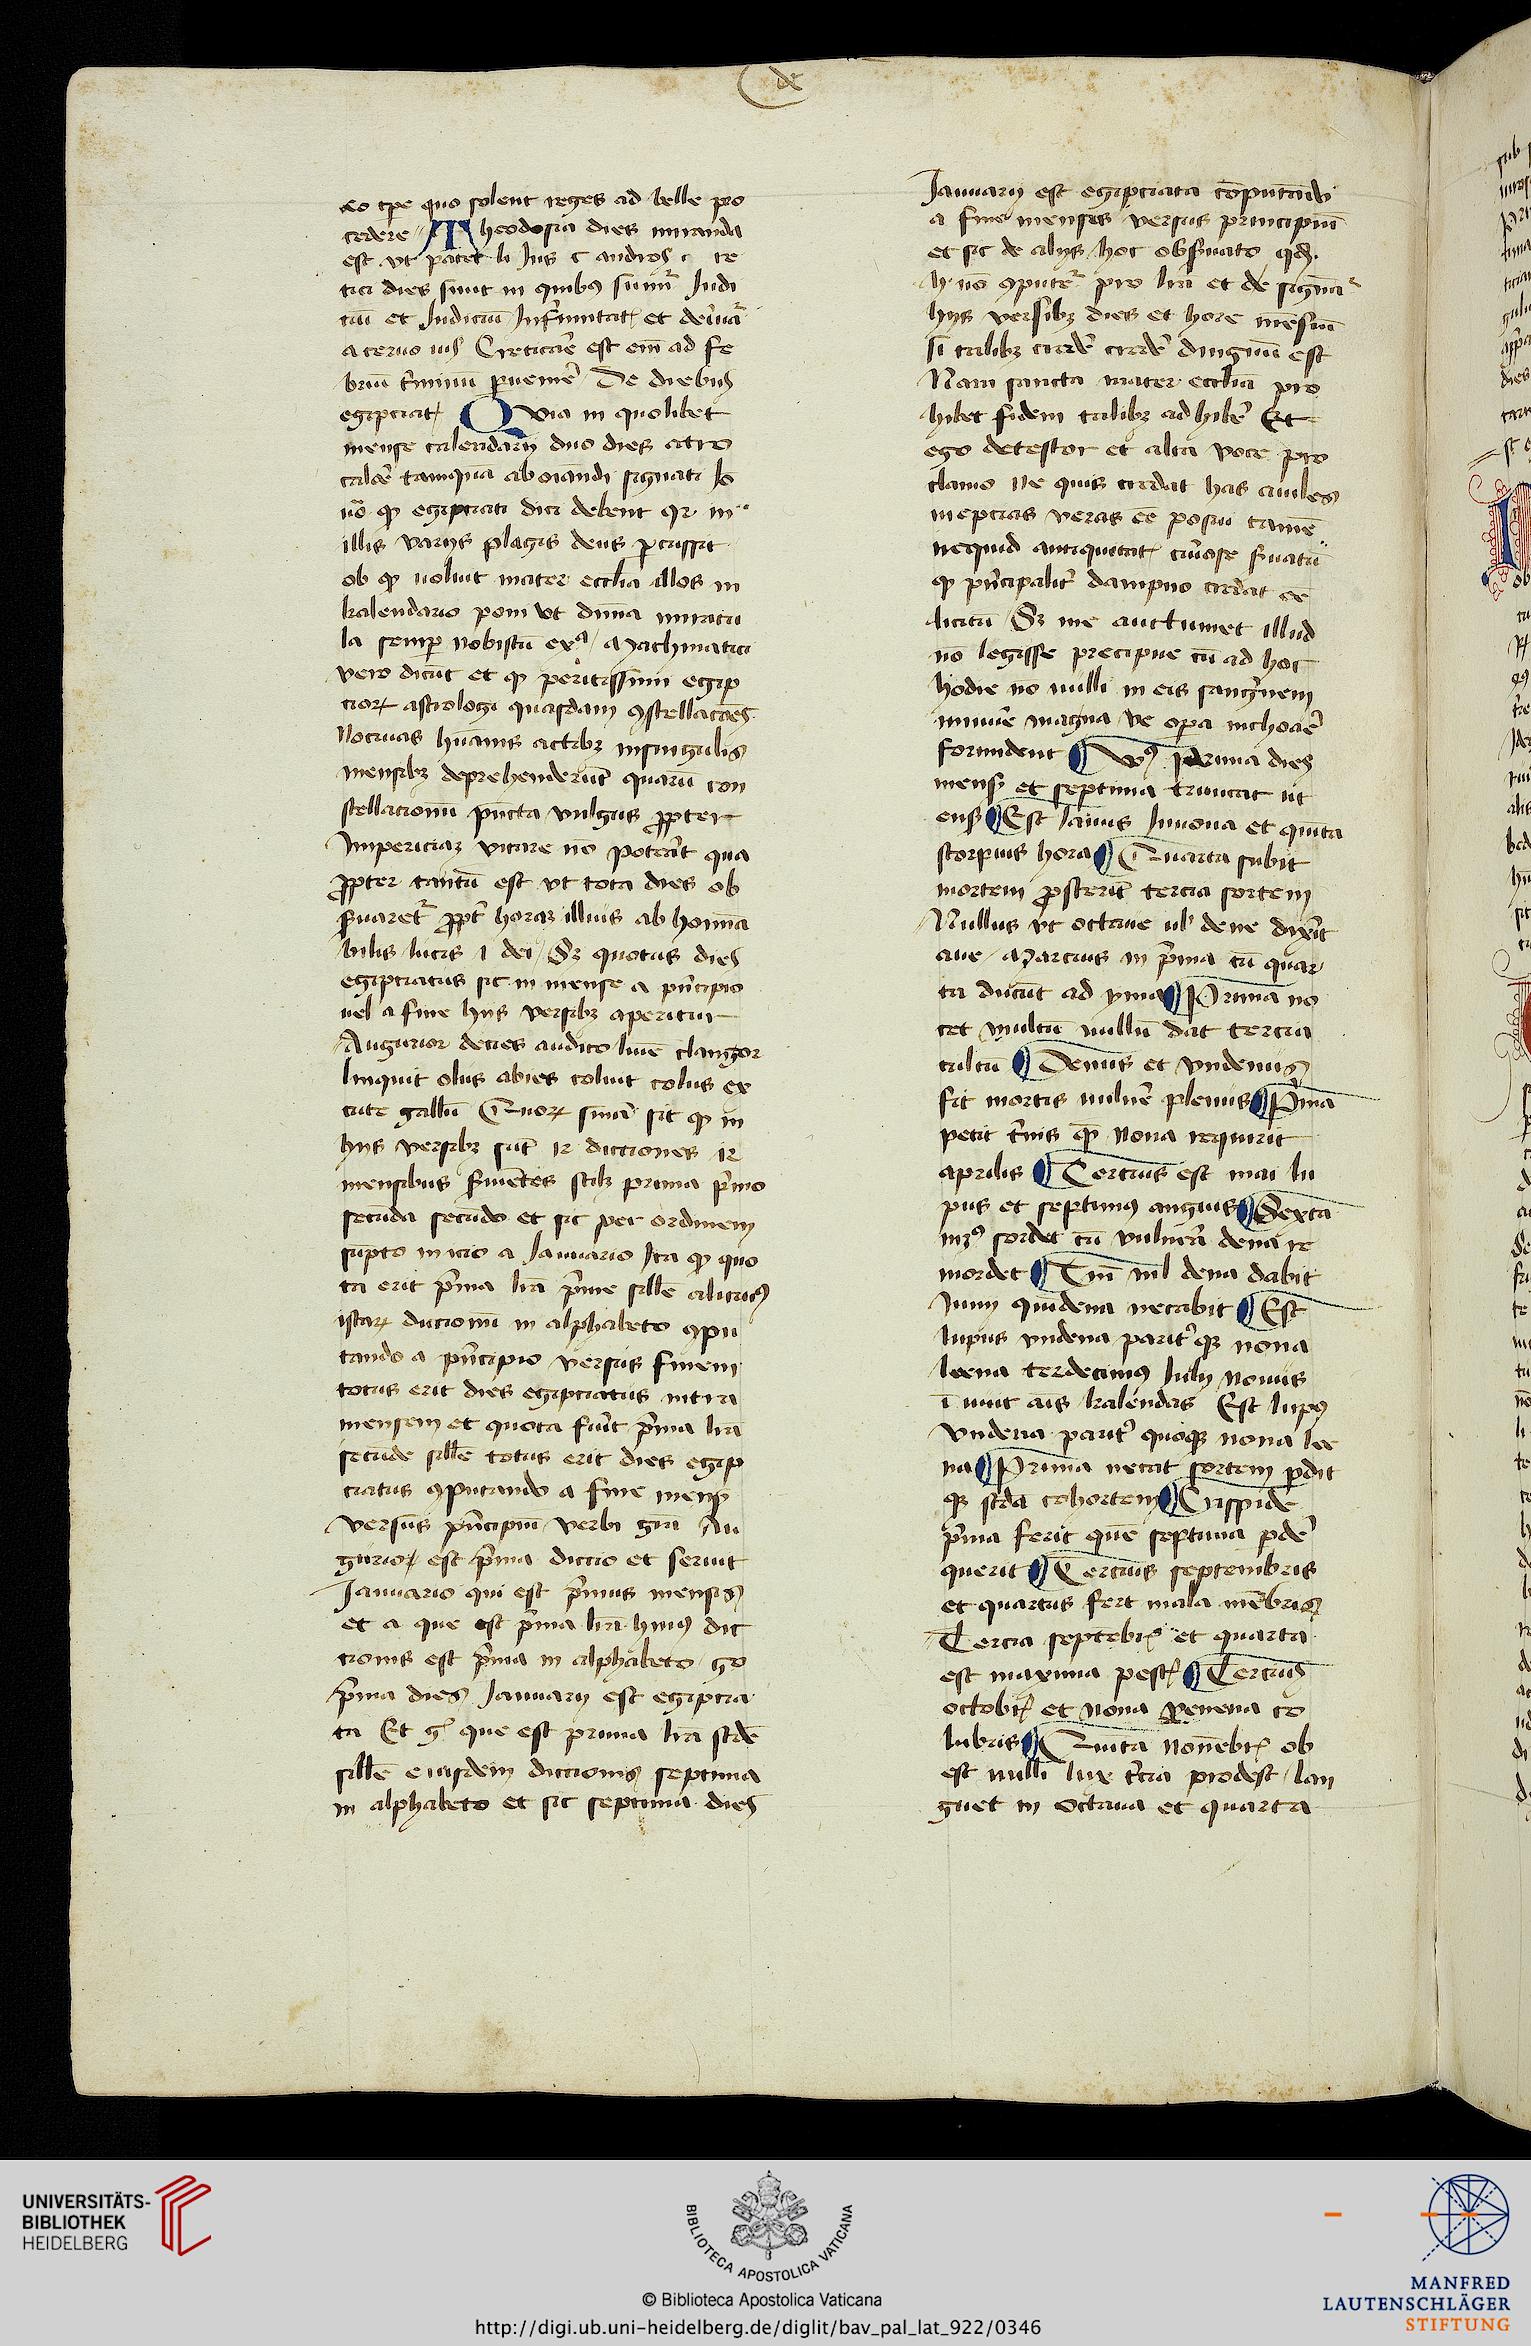 de
eo tp̄e quo solent reges ad belle pro
cedere Theodosia dies miranda
est vt patet li Ius c andros c re
tici dies sunt in quibus sumit̄ Indi
ciū et Indiciū Infirmitat et deriuat̄
a cerno nis Creticare est em̄ ad fe
briū t̄minū ꝑuenire De diebus
egipciat Quia in quolibet
mense calendarij duo dies atro
calore tamquā abominandi signati
qꝫ egipciati dici debent qr in
illis varijs plagis deus ꝑcussit
ob qꝫ voluit mater ecclīa illos in
kalendario poni vt diuina miracu
la semꝑ nobiscū Mathmatici
vero dicūt et qꝫ peritissimi egip
cioꝝ astrologi quasdam ꝯstellacōes
nociuas hūanis actibꝫ in singulis
mensibꝫ deprehenderūt quarū con
stellacionū pūcta vulgus ꝓpter
Impericiaꝫ vitare nō poterāt qua
ꝓpter cautū est vt tota dies ob
ẜuaret̄ ꝓpt̄ horaꝫ illius abhomīa
bilis lucis i dei Sꝫ quotus dies
egipciatus sit in mense a pn̄cipio
uel a fine hijs versibꝫ aperitur
Augurior decies audito lumē clangor
linquit olus abies coluit colus ex
cute gallū Quoꝝ sit qꝫ in
hijs versibꝫ sūt 12 dictiones 12
mensibus ẜuiētes scilꝫ prima p̄mo
secūda secūdo et sic per ordinem
sūpto inicio a Ianuario Ita qꝫ quo
ta erit p̄ma lr̄a p̄me sill̄e alicuius
istaꝝ dictionū in alphabeto ꝯpu
tando a pn̄cipio versus finem
totus erit dies egipciatus intra
mensem et quota fuīt p̄ma lr̄a
secūde sill̄e totus erit dies egip
ciatus ꝯputando a fine mensꝭ
versus pn̄cipiū verbi grā Au
gurior est p̄ma dictio et seruit
Ianuario qui est p̄mus mensis
et a que est p̄ma lr̄a huius dic
tionis est p̄ma in alphabeto go
p̄ma dies Ianuarij est egipcia
ta Et g que est prima lr̄a scd̄e
sill̄e eiusdem dictionis septima
in alphabeto et sic septima dies
Ianuarij est egipciata cōputandi
a fine mensis versus principiū
et sic de alijs hoc obẜuato qd
h nō ꝯputet̄ pro lr̄a et de
hijs versibꝫ dies et hore mēsiū
si talibꝫ credē̄ credē̄ dingnū est
Nam sancta mater ecclīa pro
hibet fidem talibꝫ adhibē̄ Et
ego detestor et alta voce pro
clamo ne quis credat has aniles
inepcias veras ēē posui tamē
nequid antiquitatꝭ curiose ẜuatū
qꝫ pn̄cipalit̄ dampno credat ēē
licitū Sꝫ me auctumet illud
nō legisse precipue cū ad hoc
hodie nō nulli in eis sangwinem
minuē̄ magna ve oꝑa inchoare
formident ¶ Vs Prima dies
mensꝭ et septima truncat ut
ensꝭ ¶ Est Ianus Iunona et quīta
scorpius hora ¶ Quarta subit
mortem ꝓsternit tercia fortem
Nullus vt octaue ul dene dixit
aue Marcius in p̄ma cū quar
ta ducūt ad yma ¶ Prima no
cet multū nullū dat tercia
cultū ¶ Denus et vndenus
fit mortis vulnē̄ plenus ¶ P̄ma
petit t̄nis qꝫ nona requirit
aprilis ¶ Tercius est mai lu
pus et septimus anguis ¶ Sexta
sordet cū vulnera dena re
mordet ¶ dena dabit
Iunij quindena necabit ¶ Est
lupus vndena parit̄qꝫ nona
leena terdecimus Iulij nonus
ī nuit āīs kalendas Est lupus
vndena parit̄ quoqꝫ nona lee
na ¶ Prima necat fortem ꝑdit
qꝫ scd̄a cohortem ¶ Cuspide
p̄ma ferit quē septima pdē̄
querit ¶ Tercius septembris
et quartus fert mala mēbris
Tercia septēbrꝭ et quarta
est maxima pestꝭ ¶ Tercius
octobrꝭ et nona venena co
lubris ¶ Quinta nouēbrꝭ ob
est nulli lux t̄cia prodest lan
guet in octaua et quarta
UNIVERSITÄTS-
BIBLIOTHEK
HEIDELBERG
BIBLIOTECA APOSTOLICA VATICANA
© Biblioteca Apostolica Vaticana
http://digi.ub.uni-heidelberg.de/diglit/bav_pal_lat_922/0346
MANFRED
LAUTENSCHLÄGER
STIFTUNG